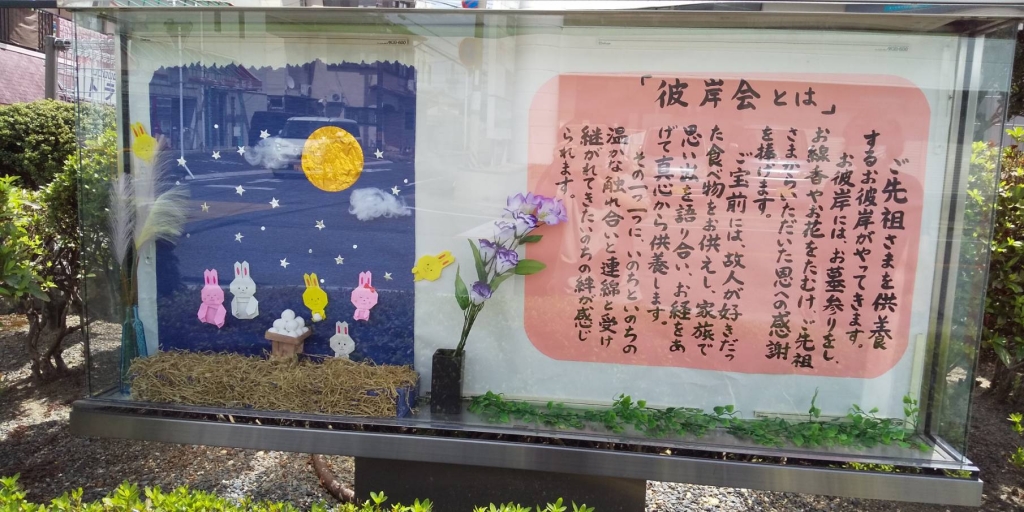 「彼岸会とは」
ご先祖さまを供養
するお彼岸がやってきます。
お彼岸には、お墓参りをし、
お線香やお花をたむけ、ご先祖
さまからいただいた恩への感謝
を捧げます。
ご宝前には、故人が好きだっ
た食べ物をお供えし、家族で
思い出を語り合い、お経をあ
げて真心から供養します。
その一つ一つに、いのちといのちの
温かな触れ合いと連綿と受け
継がれてきたいのちの絆が感じ
られます。